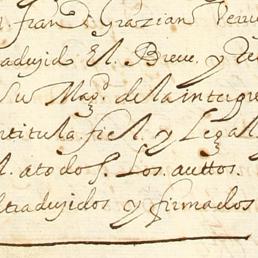 n. fran.co Grazian Verru
raduzid El. Breve. y de
Su Mag.d de la interpre
ntitula. fiel. y Legal
l. ato do s. Los. auttos.
traduzidos y firmados